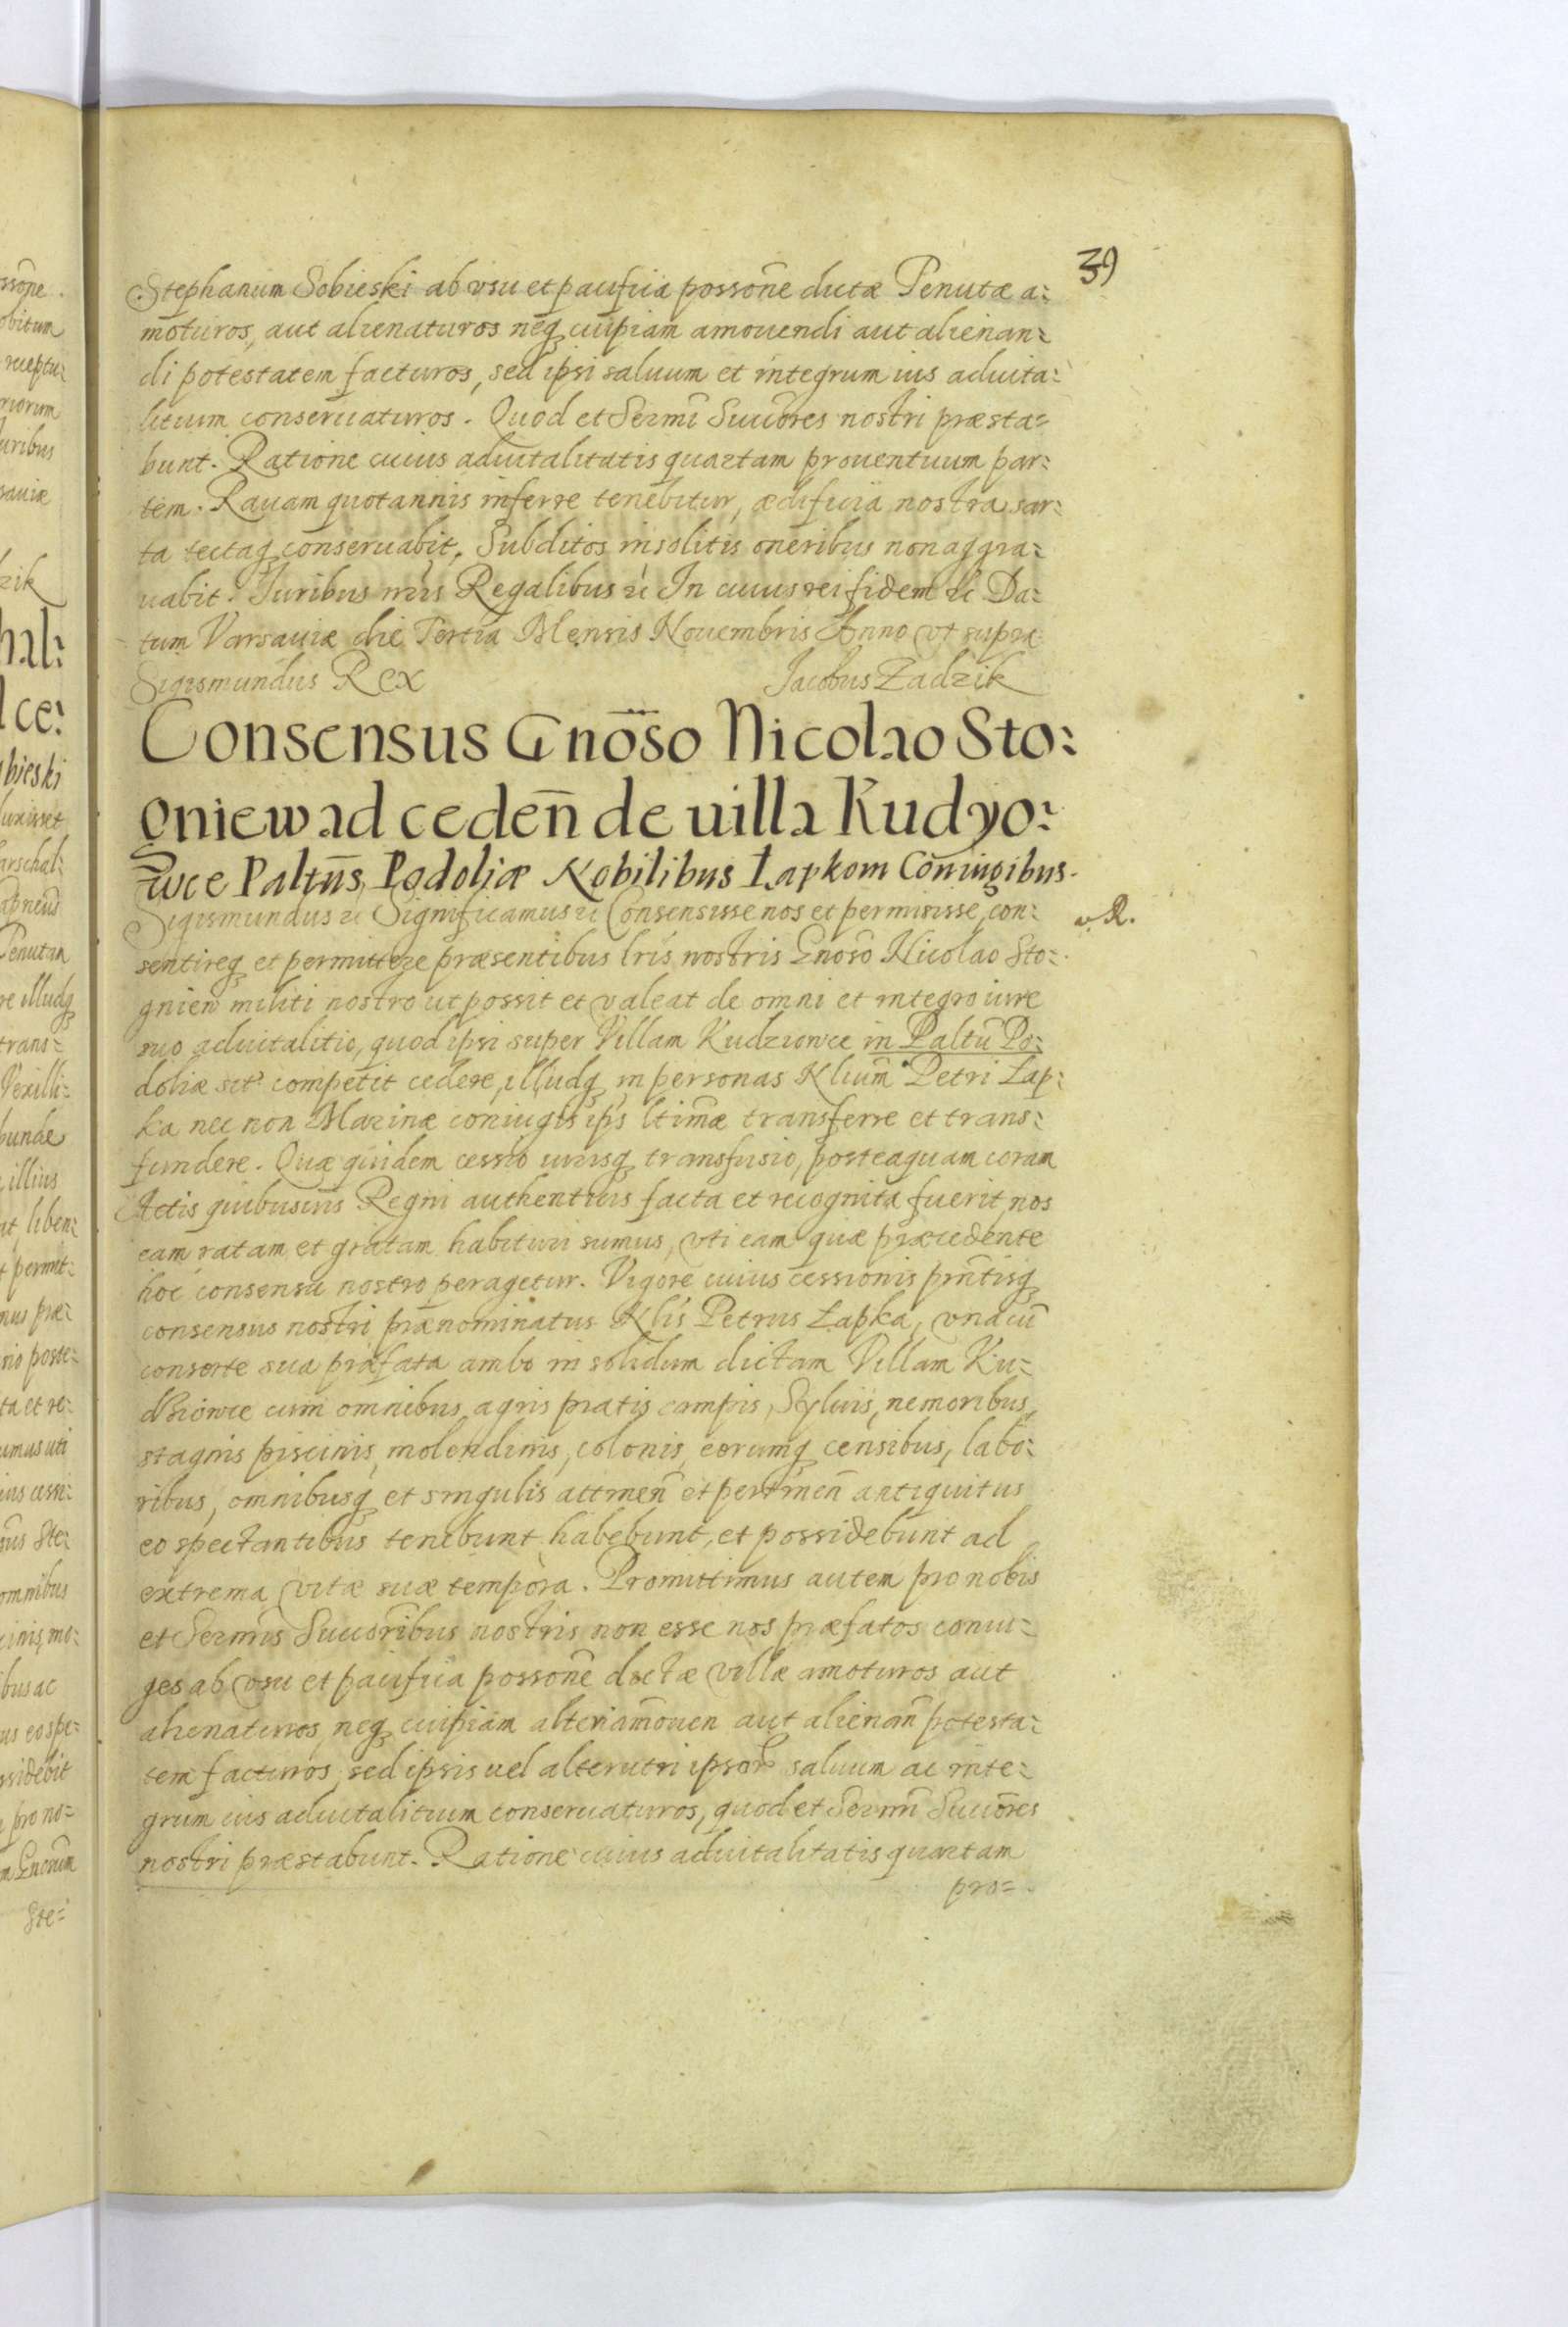 39
Stephanum Sobieski ab vsu et pacifica possoñe dictæ Tenutæ a:
moturos, aut alienaturos neq cuipiam amouendi aut alienan:
di potestatem facturos, sed ipsi saluum et integrum ius aduita:
litium conseruaturos. Quod et Sermi Succores nostri præsta=
bunt. Ratione cuius aduitalitatis quartam prouentuum par:
tem. Rauam quotannis inferre tenebitur, ædificia nostra sar:
ta tectaq conseruabit, Subditos insolitis oneribus non aggra:
uabit. Iuribus nris Regalibus &c In cuius rei fidem &c Da:
tum Varsauiæ die Tertia Mensis Nouembris Anno vt supra
Sigismundus Rex Jacobus Zadzik
Consensus Gnõso Nicolao Sto:
gniew ad cedeñ de uilla Kudyo:
wce Paltus Podoliæ Nobilibus Łapkom Coniugibus.
Sigismundus &c Significamus &c Consensisse nos et permisisse, con:
v. R.
sentireq et permittere præsentibus lris nostris Gnoso Nicolao Sto:
gniew militi nostro ut possit et valeat de omni et integro iure
suo aduitalitio, quod ipsi super Villam Kudziowce in Paltu Po:
doliæ sit competit cedere, illudq in personas Nlium Petri Łap:
ka nec non Marinæ coniugis ips ltimæ transferre et trans:
fundere. Quæ quidem cessio iurisq transfusio, posteaquam coram
Actis quibusuis Regni authenticis facta et recognita fuerit, nos
eam ratam et gratam habituri sumus, vti eam quæ præcedente
hoc consensu nostro peragetur. Vigore cuius cessionis prntisq
consensus nostri prænominatus Nlis Petrus Łapka, vna cũ
consorte sua præfata ambo in solidum dictam Villam Ku=
dziowce cum omnibus agris pratis campis, Syluis, nemoribus,
stagnis piscinis, molendinis, colonis, eorumq censibus, labo:
ribus, omnibusq et singulis attineñ et pertineñ antiquitus
eo spectantibus tenebunt habebunt, et possidebunt ad
extrema vitæ suæ tempora. Promittimus autem pro nobis
et Sermis Succoribus nostris non esse nos præfatos coniu=
ges ab vsu et pacifica possoñe dictæ villæ amoturos aut
alienaturos, neq cuipiam alteri amouen aut alienañ potesta:
tem facturos, sed ipsis uel alterutri ipsor saluum ac inte:
grum ius aduitalitium conseruaturos, quod et Sermi Succores
nostri præstabunt. Ratione cuius aduitalitatis quartam
pro=